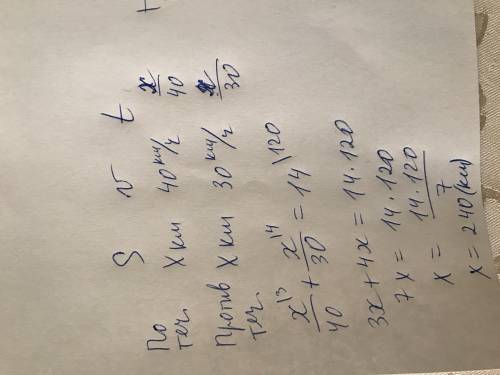 S v t
По теч. X км 40 км/ч x/40
Против теч. X км 30 км/ч x/30
x\3/40 + x\4/30 = 14 \120
3x + 4x = 14·120
7x = 14·120
x = 14·120/7
x = 240 (км)